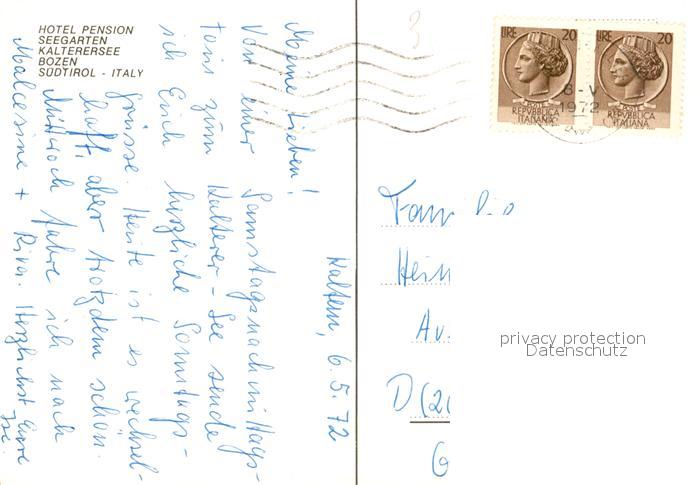 HOTEL PENSION
SEEGARTEN
KALTERERSEE
BOZEN
SÜDTIROL - ITALY
Kaltern, 6.5.72
Meine Lieben!
Von einer Samstagnachmittags-
tour zum Kalterer-See sende
ich Euch herzliche Sonntags-
grüsse. Heute ist es wechsel-
haft, aber trotzdem schön.
Mittwoch fahre ich nach
Malcesine + Riva. Herzlichst Eure
3
LIRE 20
POSTE
REPVBBLICA
ITALIANA
LIRE 20
POSTE
REPVBBLICA
ITALIANA
8-V
1972
Fam
Hein
Av
D (2
G
privacy protection
Datenschutz